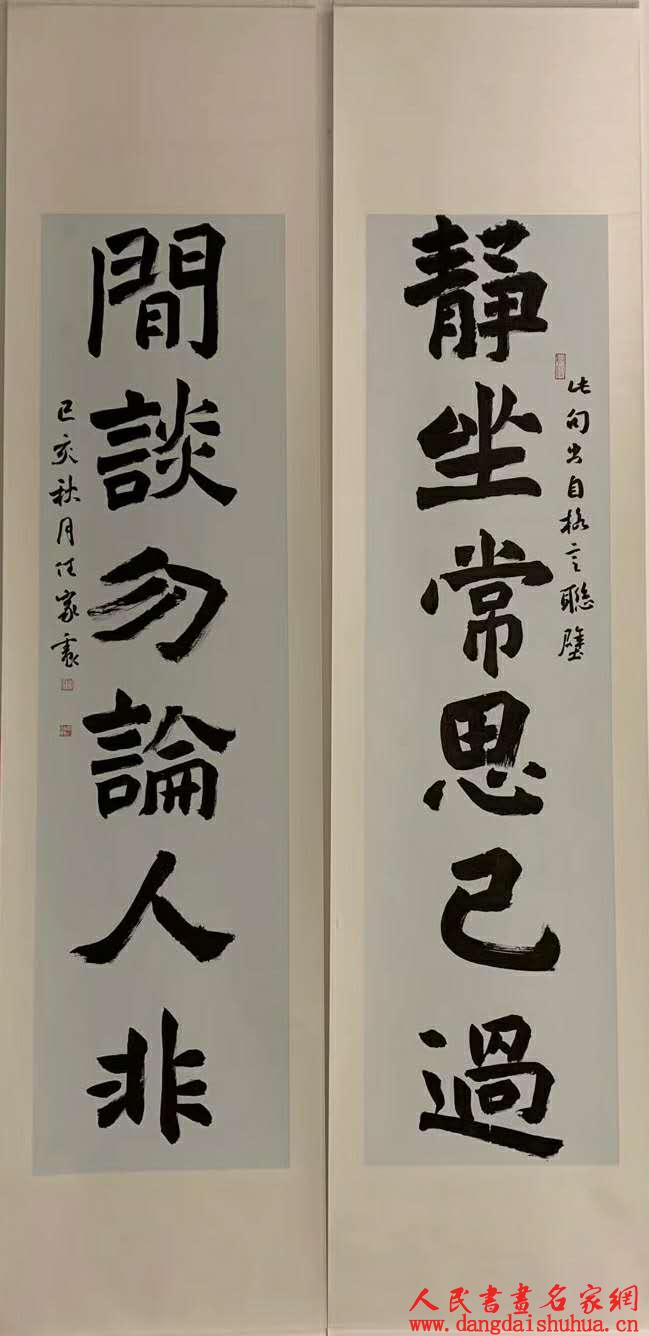 靜坐常思己過
此句出自格言聯璧
閒談勿論人非
己亥秋月任家震
人民書畫名家網
www.dangdaishuhua.cn